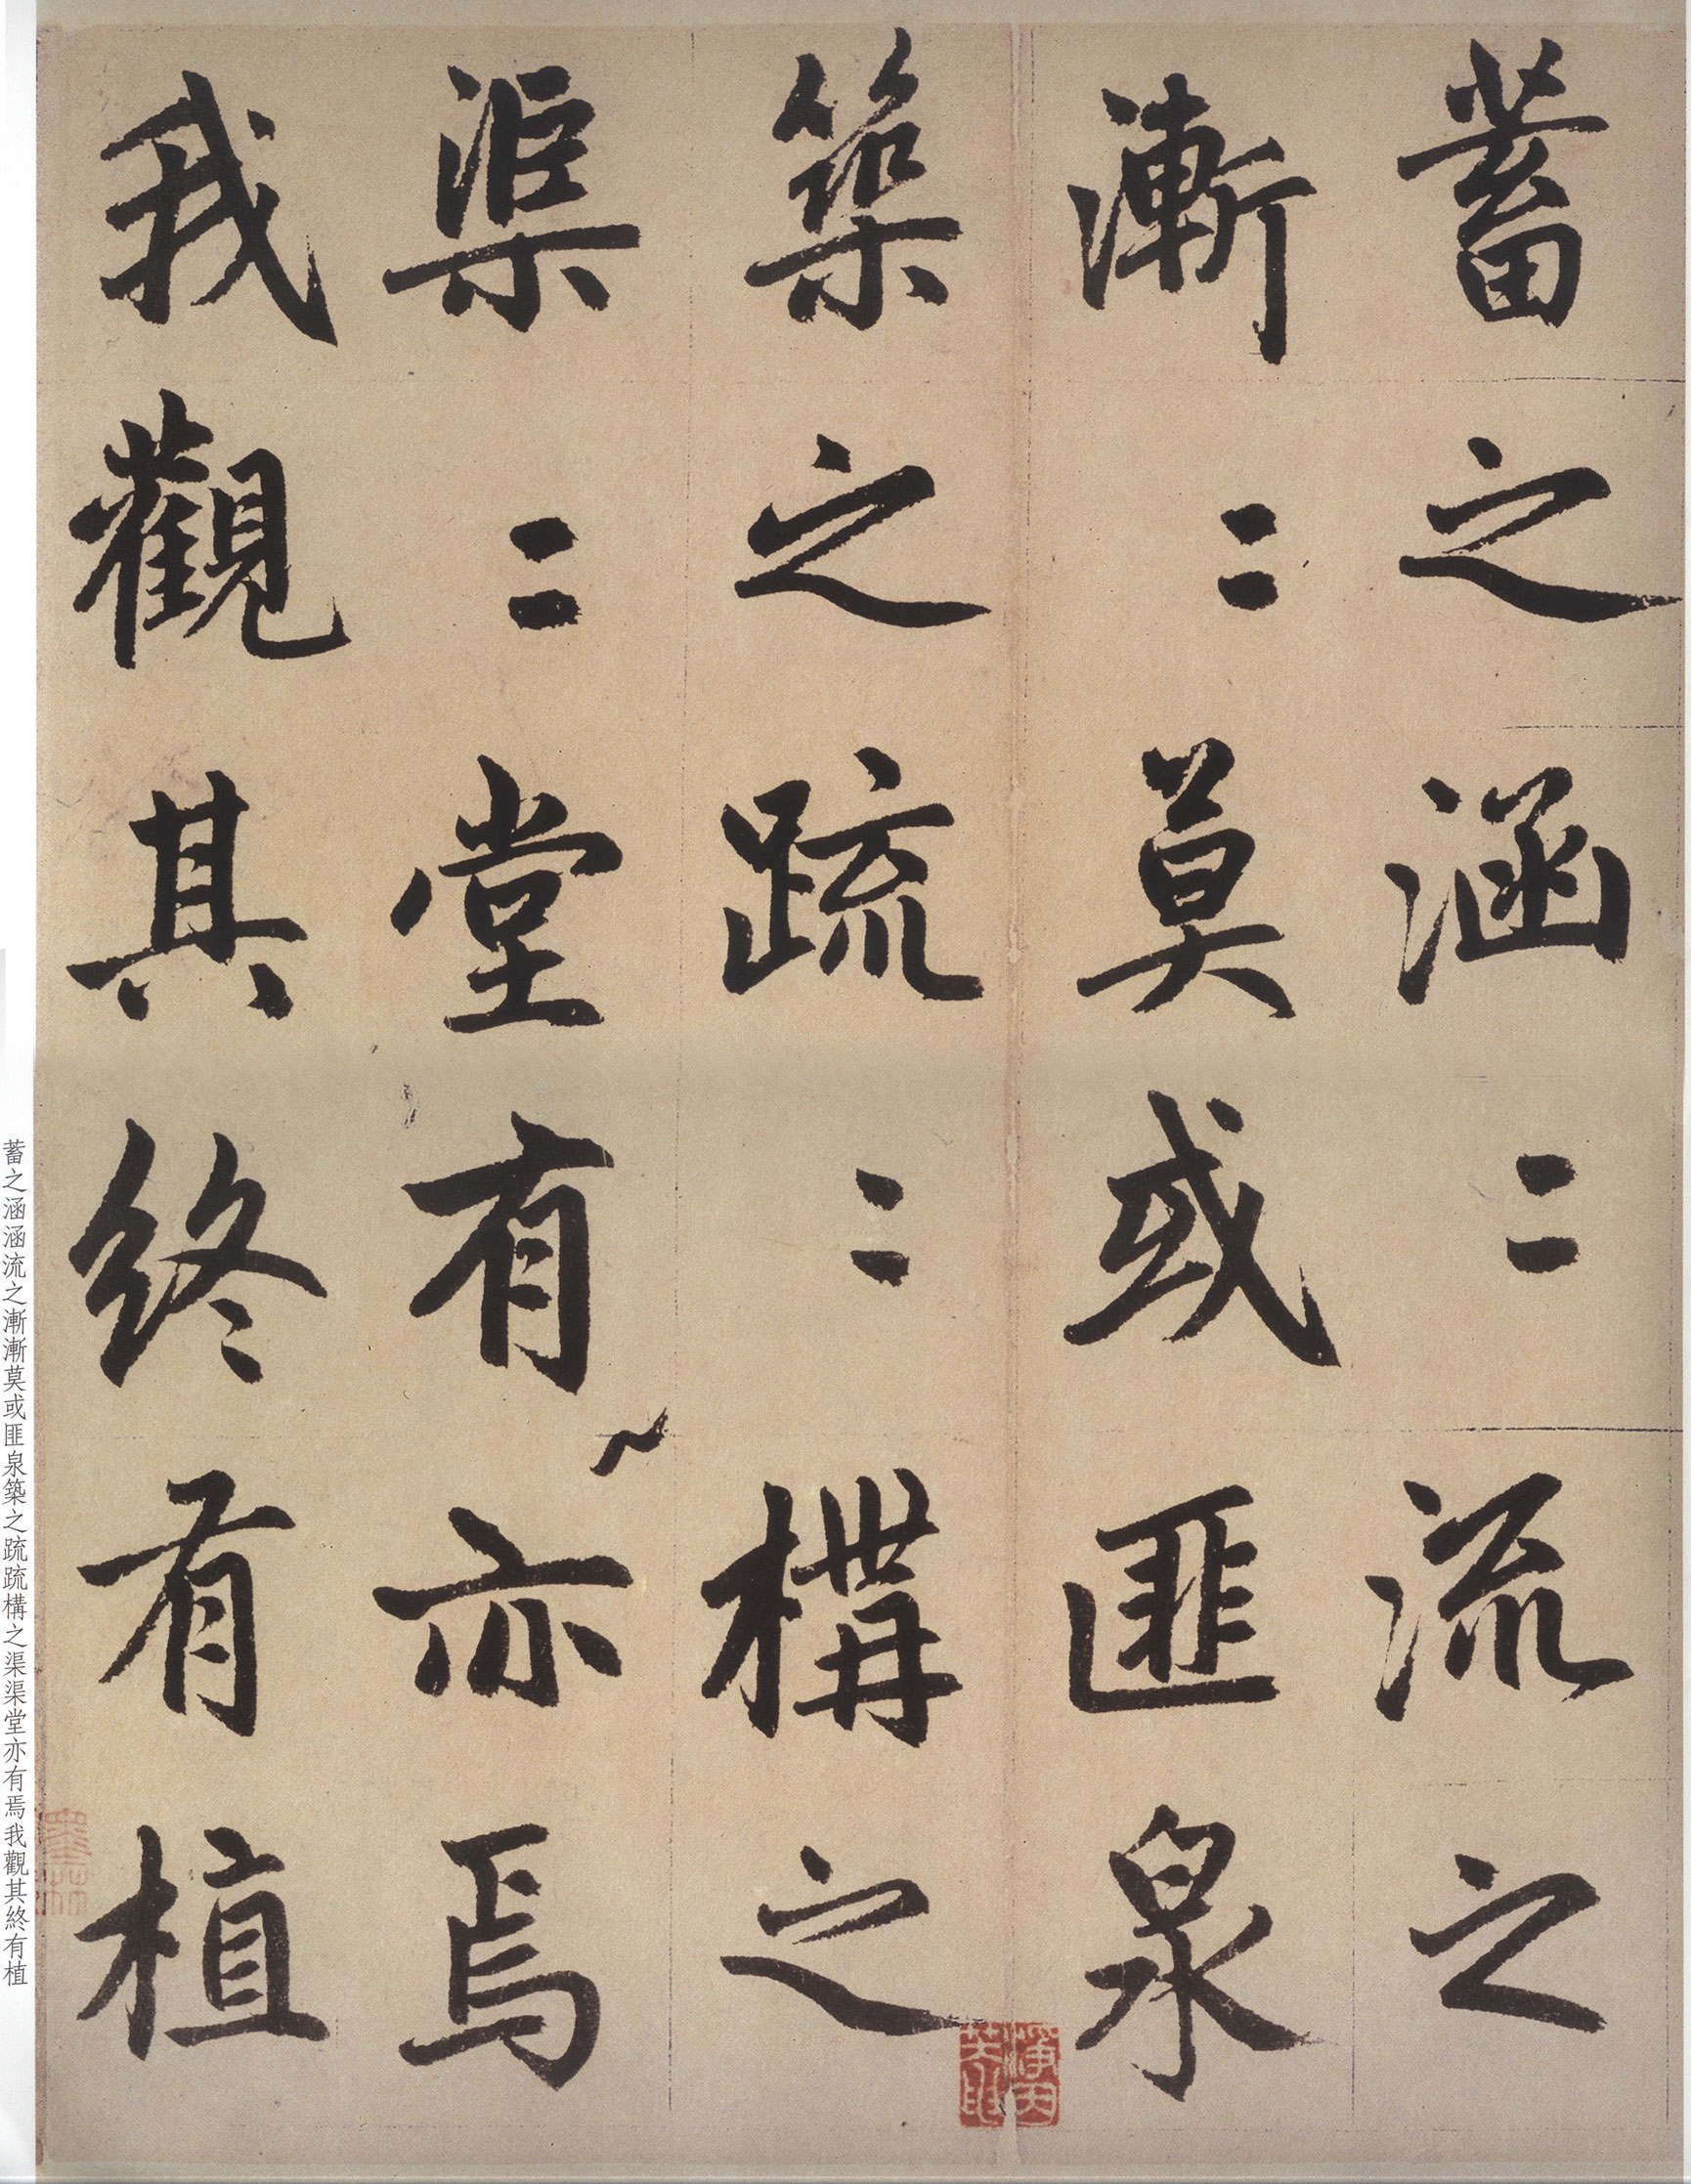 蓄之涵〻流之
漸〻莫或匪泉
築之疏〻構之
渠〻堂有亦焉
我觀其終有植
蓄之涵涵流之漸漸莫或匪泉築之疏疏構之渠渠堂亦有焉我觀其終有植